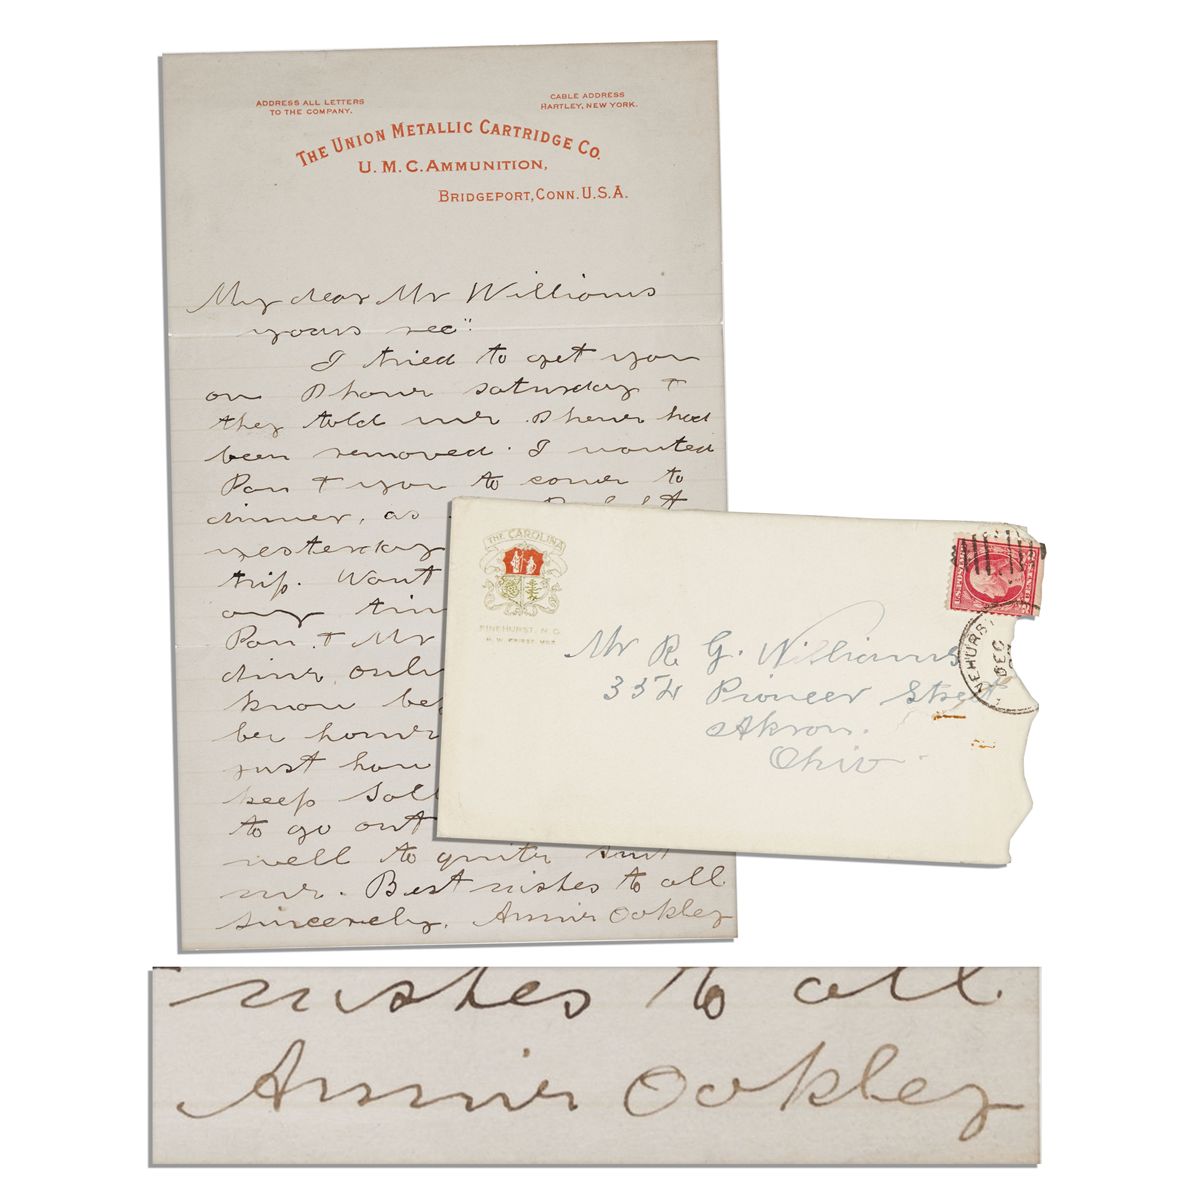 ADDRESS ALL LETTERS
TO THE COMPANY.
CABLE ADDRESS
HARTLEY, NEW YORK.
THE UNION METALLIC CARTRIDGE CO.
U. M. C. AMMUNITION,
BRIDGEPORT, CONN. U.S.A.
My dear Mr Williams
yours rec"
I tried to get you
on Phone Saturday &
they told me Phone had
been removed. I wanted
Pan & you to come to
dinner, as
yesterday
trip. Wont
any tim
Pan. & Mr
dine only
know be
be home
just how
keep
to go out
well to quite suit
me. Best wishes to all
sincerely, Annie Oakley
THE CAROLINA
PINEHURST, N.C.
U.S. POSTAGE
2 CENTS 2
NEHURST
DEC
Mr R. G. Williams
354 Pioneer Street
Akron.
Ohio.
wishes to all
Annie Oakley